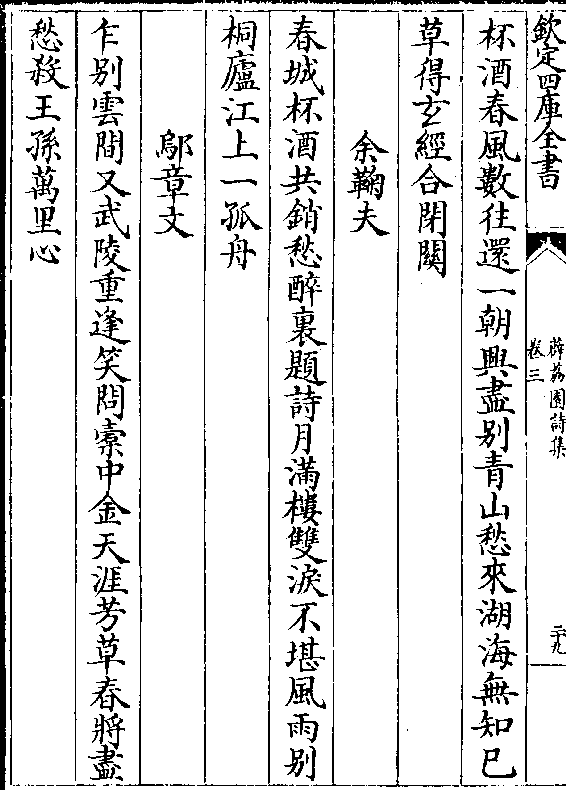 欽定四庫全書
薜荔園詩集
卷三
二十九
杯酒春風數往還一朝興盡别青山愁來湖海無知已
草得玄經合閉關
余鞠夫
春城杯酒共銷愁醉裏題詩月滿樓雙淚不堪風雨别
桐廬江上一孤舟
鄔章文
乍别雲間又武陵重逢笑問槖中金天涯芳草春將盡
愁殺王孫萬里心